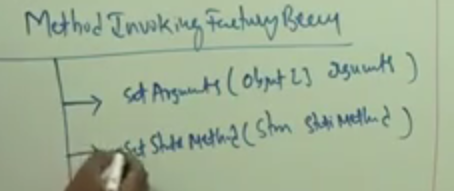 Method Invoking Factory Bean
set Arguments (Object [] arguments)
set Static Method (String static Method)